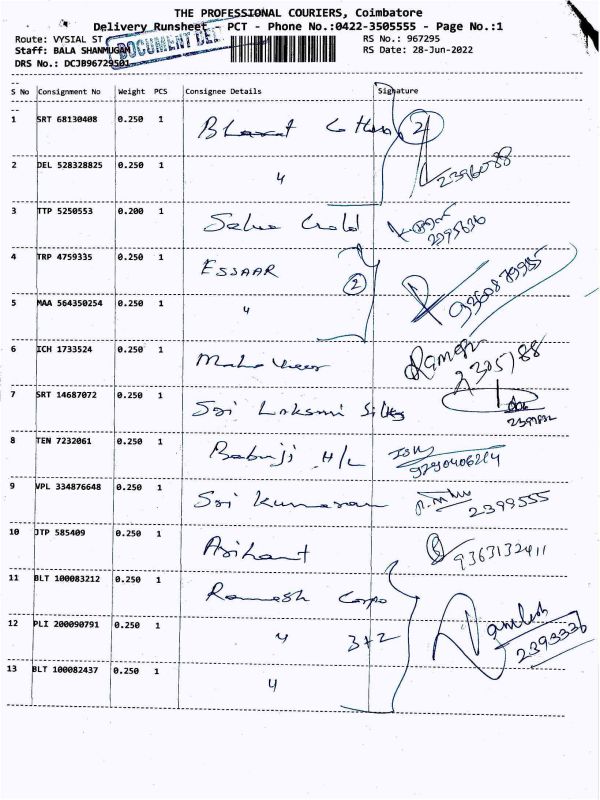 THE PROFESSIONAL COURIERS, Coimbatore
Delivery Runsheet - PCT - Phone No.:0422-3505555 - Page No.:1
Route: VYSIAL ST RS No.: 967295
Staff: BALA SHANMUGAM RS Date: 28-Jun-2022
DRS No.: DCJB96729501
DOCUMENT DEL
S No Consignment No Weight PCS Consignee Details Signature
1 SRT 68130408 0.250 1 Bharat Cottons 2
2 DEL 528328825 0.250 1 " 2396088
3 TTP 5250553 0.200 1 Gold 2295636
4 TRP 4759335 0.250 1 ESSAAR
5 MAA 564350254 0.250 1 " 2
6 ICH 1733524 0.250 1 Mahaveer Ramesh
7 SRT 14687072 0.250 1 Sri Laksmi Silks
8 TEN 7232061 0.250 1 Babuji H/L 9290406214
9 VPL 334876648 0.250 1 Sri Kumaran 2399555
10 JTP 585409 0.250 1 Arihant 9363132411
11 BLT 100083212 0.250 1 Ramesh Corpo
12 PLI 200090791 0.250 1 " 3+2
13 BLT 100082437 0.250 1 "